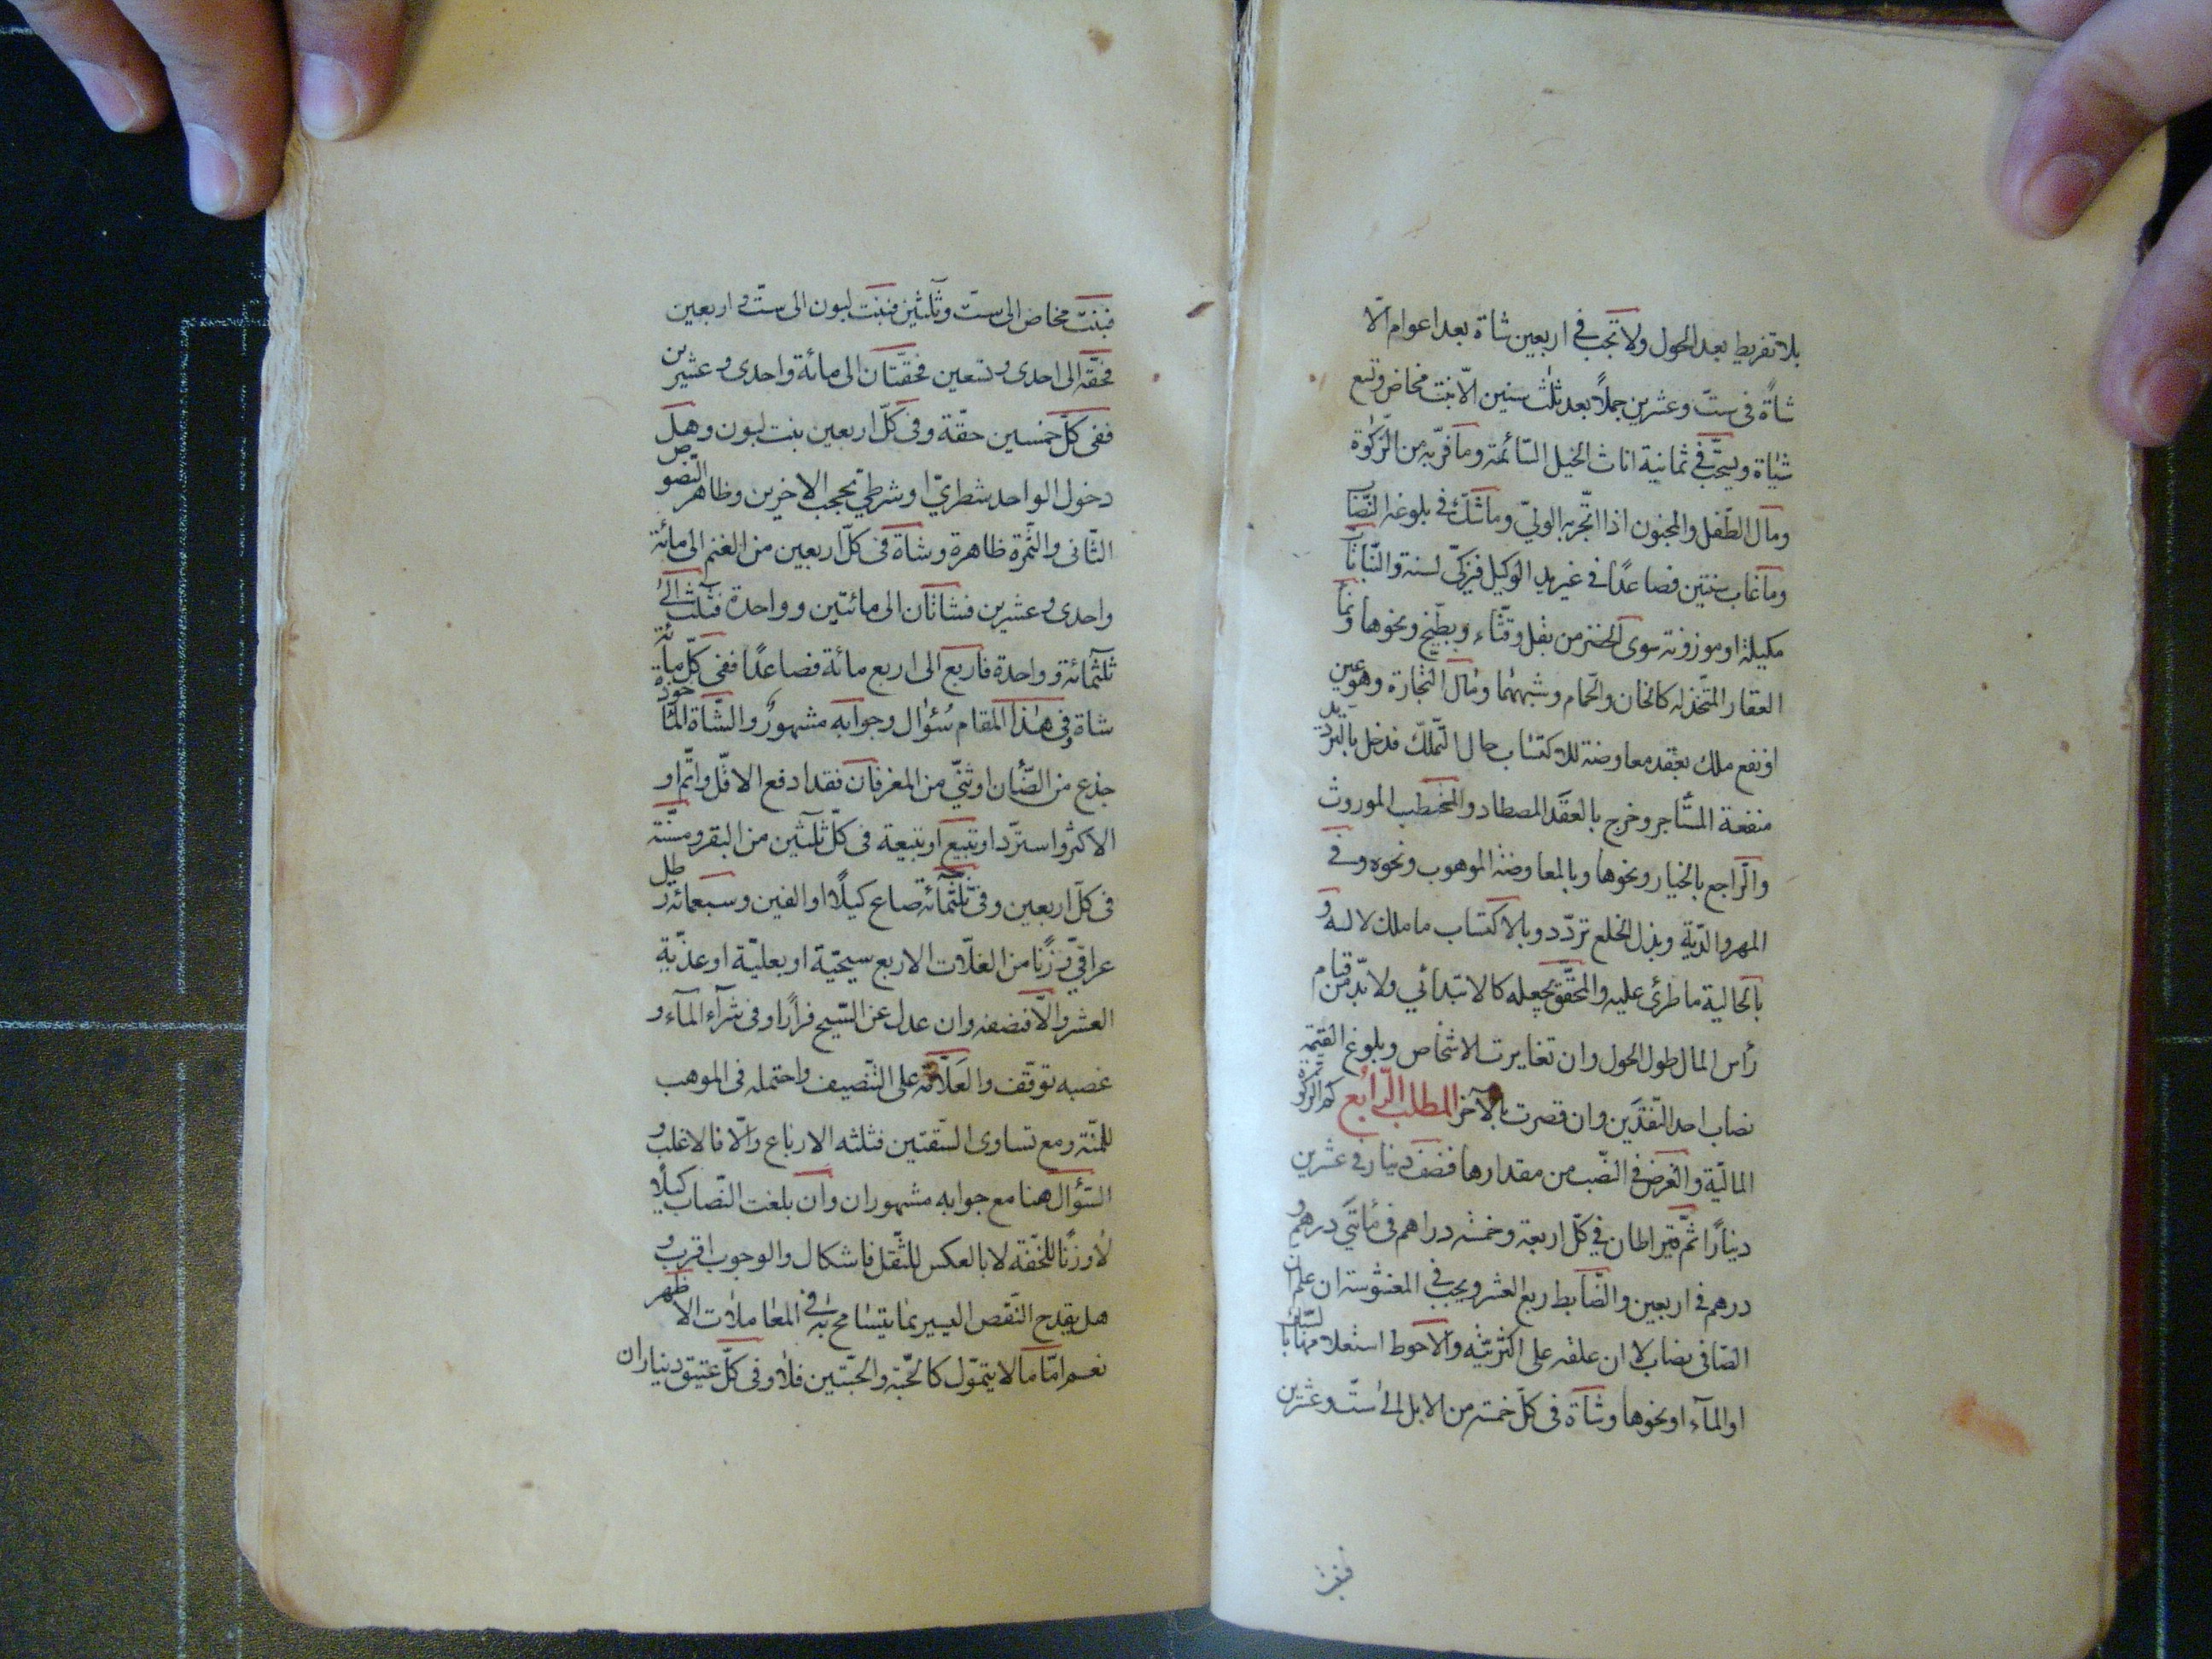 بلا تفريط بعد الحول ولا تجب في اربعين شاة بعد اعوام الّا
شاةً فى ستّ وعشرين جملًا بعد ثلث سنين الّا بنت مخاض وتسع
شياة ويستحبّ في ثمانية اناث الخيل السّائمة وما فرّ به من الزّكوة
ومال الطّفل والمجنون اذا اتّجر به الوليّ وما شكّ في بلوغه النّصاب
وما غاب سنتين فصاعدًا في غير يد الوكيل فيزكّى لسنة والنّابتات
مكيلة او موزونة سوى الخضر من بقل وقثّاء وبطّيخ ونحوها ونماء
العقار المتّخذ له كالخان والحمام وشبههما ومال التّجارة وهو عين
او نفع ملك بعقد معاوضة للاكتساب حال التّملّك فدخل بالتّرديد
منفعة المستأجر وخرج بالعقد المصطاد والمحتطب الموروث
والرّاجع بالخيار ونحوها وبالمعاوضة الموهوب ونحوه وفي
المهر والدّية وبذل الخلع تردّد وبالاكتساب ما ملك لا له و
بالحالية ما طرئ عليه والمحقّق يجعله كالابتدائي ولابدّ من قيام
رأس المال طول الحول وان تغايرت الاشخاص وبلوغ القيمة
نصاب احد النّقدين وان قصرت بالآخر المطلب الرّابع ثمرة الزكوة
الماليّة والغرض في النّصب من مقدارها فنصف دينار في عشرين
دينارًا ثمّ قيراطان في كلّ اربعة وخمسة دراهم فى مأتي درهم و
درهم في اربعين والضّابط ربع العشر ويجب في المغشوشة ان علم ان
الصّافى نصاب لا ان علفه على اكثريّته والاحوط استعلامها بالسّبك
او الماء او نحوها وشاة فى كلّ خمسة من الابل الى ستّ وعشرين
فبنت
فبنت مخاض الى ستّ وثلثين فبنت لبون الى ستّ و اربعين
فحقّة الى احدى وستعين فحقّتان الى مائة واحدى وعشرين
ففى كلّ خمسين حقّة وفى كلّ اربعين بنت لبون وهل
دخول الواحد شطريّ او شرطي تحجب الاخرين وظاهر النّصوص
الثّانى والثّمرة ظاهرة وشاة فى كلّ اربعين من الغنم الى مائة
واحدى وعشرين فشاتان الى مائتين وواحدة فثلث الى
ثلثمائة وواحدة فاربع الى اربع مائة فصاعدًا ففى كلّ مائة
شاة وفى هذا المقام سُؤال وجوابه مشهورٌ والشّاة المأخوذة
جذع من الضّأن او ثنيّ من المعز فان فقدا دفع الاقلّ واتّم او
الاكثر واسترّد او تبيع او تبيعة فى كلّ ثلثين من البقر ومسنّة
فى كلّ اربعين وفى ثلثمائة صاع كيلًا او الفين وسبعمائة رطل
عراقيّ وزنًا من الغلّات الاربع سيحيّة او بعليّة او عذّية
العشر والّا فنصفه وان عدل عن السّيح فرارًا وفى شرآء المآء و
غصبه توقّف والعلّامة على التّنصيف واحتمله فى الموهب
للمنّة ومع تساوى السّقتين فثلثه الارباع والّا فالاغلب و
السّؤال هنا مع جوابه مشهوران وان بلغت النّصاب كيلًا
لا وزنًا للخفّة لا بالعكس للثّقل فاشكال والوجوب اقرب و
هل يقدح النّقص اليسير بما يتسامح به فى المعاملات الاظهر
نعم امّا ما لا يتموّل كالحبّة والحبّتين فلا وفى كلّ عتيق ديناران